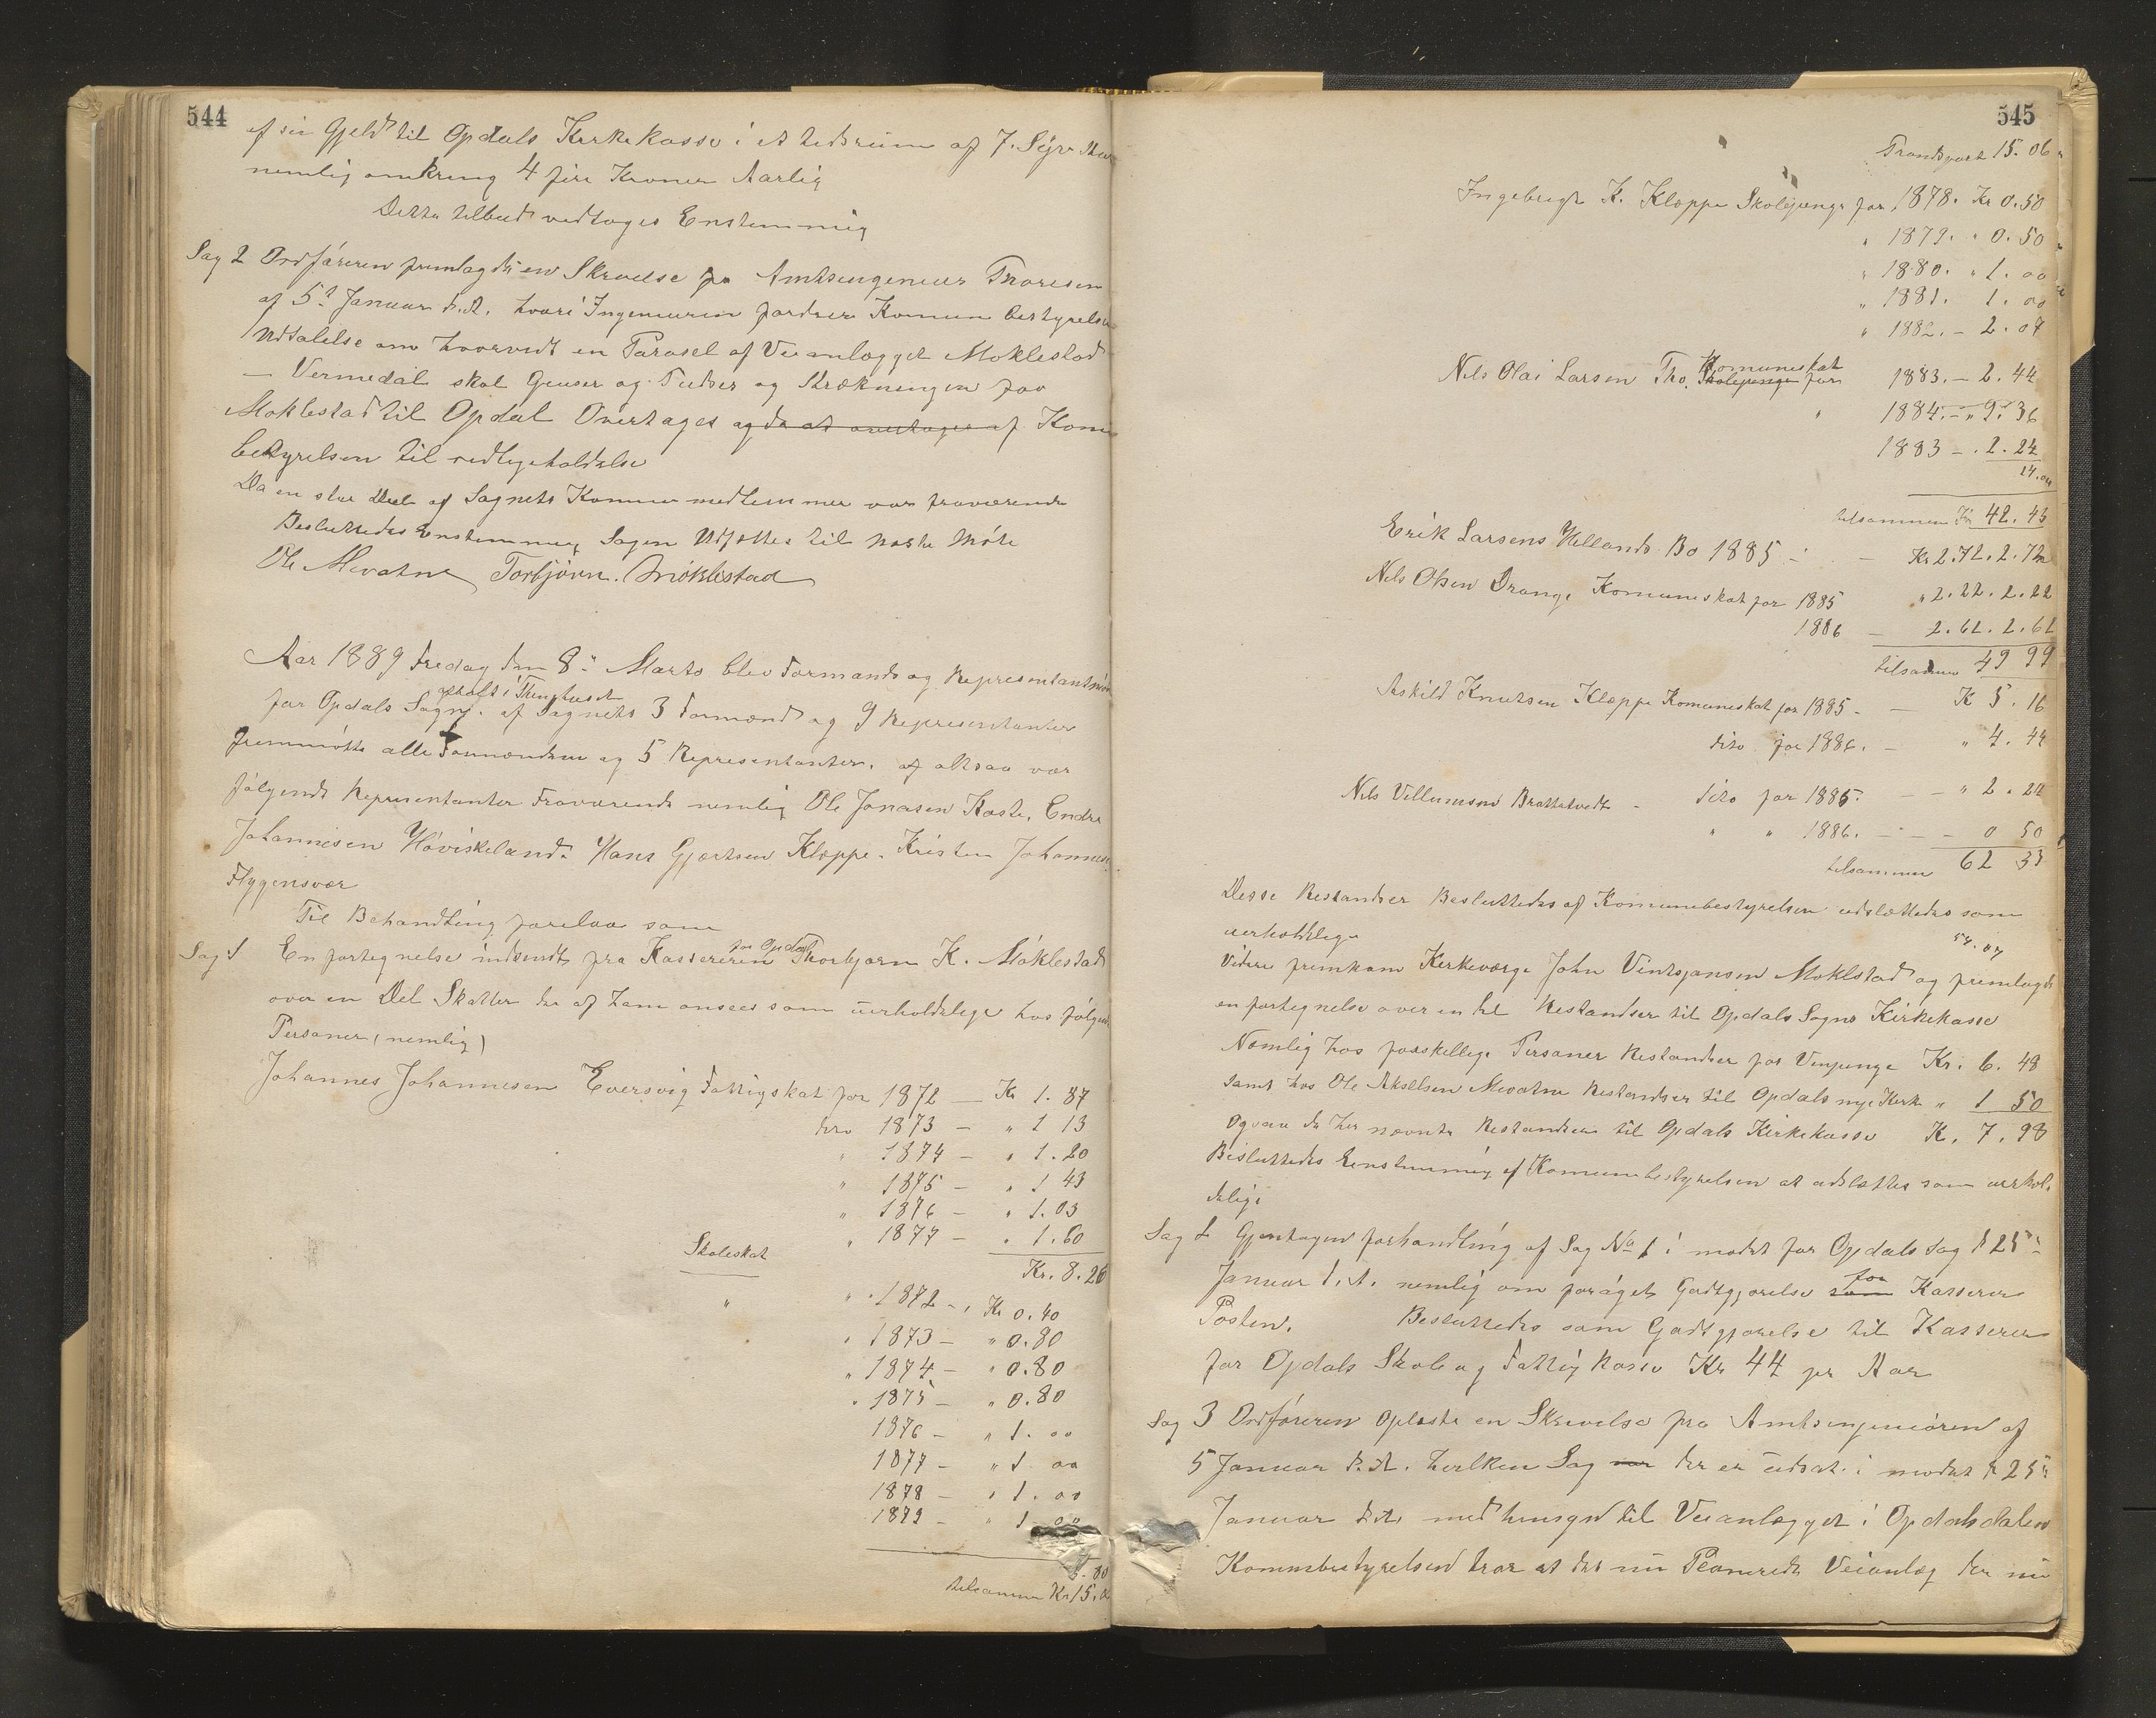 544
af sin Gjeld til Opdals Kirkekasse i et tidsrum af 7. Syv
nemlig omkring 4 fire Kroner Aarlig
Dette tilbud vedtoges Enstemmig
Sag 2 Ordføreren fremlagde en Skrivelse fra Amtsingeniør Thoresen
af 5te Januar d.A. hvori Ingeniøren fordrer Komune bestyrelsens
Udtalelse om hvorvidt en Parasel af Veianlægget Møklestad
— Vermedal skal og Strækningen fra
Møklestad til Opdal Overtages og da at overtages af Komune
bestyrelsen til vedligeholdelse
Da en stor Deel af Sagnets Komunemedlemmer var fraværende
Besluttedes Enstemmig Sagen Udsættes til næste Møte
Ole Mevatne Torbjörn. Möklestad
Aar 1889 fredag den 8de Marts blev Formands og Representantmøde
for Opdals Sogn afholt i Thinghuset. af Sagnets 3 Formænd og 9 Representanter
fremmötte alle Formændene og 5 Representanter. af altsaa var
følgende Representanter Fraværende nemlig Ole Jonasen Koste, Endre
Johannesen Høviskeland. Hans Gjertsen Kleppe. Kristen Johannesen
Flygensvær
Til Behandling forelaa som
Sag 1 En fortegnelse indsendt fra Kassereren for Opdal Thorbjørn K. Møklestad
over en Del Skatter der af ham ansees som uerholdelige hos følgende
Personer (nemlig)
Johannes Johannesen Eversvig Fattigskat for 1872 — Kr 1. 87
dito 1873 — " 1 13
" 1874 — " 1. 20
" 1875 — " 1 43
" 1876 — " 1. 03
" 1877 — " 1. 60
Kr. 8. 26
Skoleskat
" " 1872 — Kr 0. 40
" 1873 — " 0. 80
" 1874 — " 0. 80
" 1875 — " 0. 80
1876 — " 1. 00
1877 — " 1 00
1878 — " 1. 00
1879 — " 1 00
6. 80
tilsammen Kr 15. 0
545
Transport 15. 06
Ingebrigt K. Kleppe Skolepenge for 1878. Kr 0. 50
" 1879. " 0. 50
" 1880. " 1. 00
" 1881. 1. 00
" 1882. — 2. 07
Nels Olai Larsen Tho. Skolepenge Komuneskat for 1883. — 2. 44
" 1884. — " 9. 36
1883 — . 2. 24
tilsammen Kr 42. 43
Erik Larsens Hellands Bo 1885 — — Kr 2. 72. 2. 72
Nels Olsen Drange Komuneskat for 1885 " 2. 22. 2. 22
1886 — 2. 62. 2. 62
tilsammen 49 99
Askild Knutsen Kleppe Komuneskat for 1885 — — K 5. 16
dito for 1886. — " 4. 44
Nels Villumsen Brattetvedt — dito for 1885. — — " 2. 24
" " 1886. — — — 0 50
tilsammen 62 33
Desse Restandser Besluttedes af Komunebestyrelsen udslettedes som
uerholdelige
54. 07
Videre fremkom Kirkeværge John Vintsjansen Moklstad og fremlagde
en fortegnelse over en del Restandser til Opdals Sogns Kirkekasse
Nemlig hos forskellige Personer Restandser for Vinpenge Kr. 6. 48
samt hos Ole Akselsen Mevatne Restandser til Opdals nye Kirke " 1 50
Ogsaa de her nævnte Restandser til Opdals Kirkekasse K. 7. 98
Besluttedes Enstemmig af Komunebestyrelsen at udslettes som uerhol-
delige
Sag 2 Gjentagen forhandling af Sag No 1 i mødet for Opdals Sag d 25de
Januar d.A. nemlig om forøget Godtgjørelse som for Kasserer
Posten. Besluttedes som Godtgjørelse til Kasserer
for Opdals Skole og Fattig kasse Kr 44 pr Aar
Sag 3 Ordføreren Opleste en Skrivelse fra Amtsingeniøren af
5 Januar d. A. hvilken Sag var der er udsat i mødet d 25de
Januar d.A. med hensyn til Veianlægget i Opdalsdalen
Kommbestyrelsen tror at det nu Planerede Veianlæg der nu